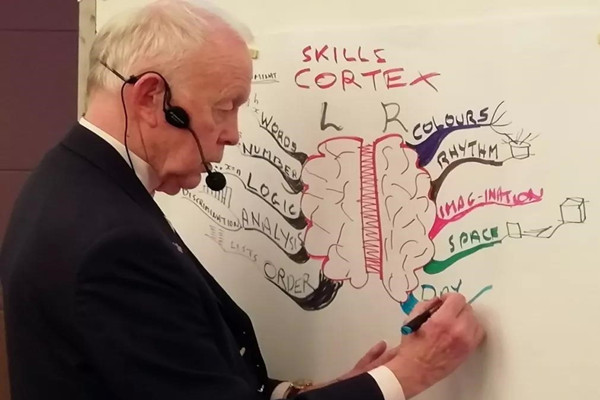 SKILLS
CORTEX
L R
WORDS
NUMBER
LOGIC
DISCRIMINATION
ANALYSIS
LISTS
ORDER
COLOURS
RHYTHM
IMAG-INATION
SPACE
DAY